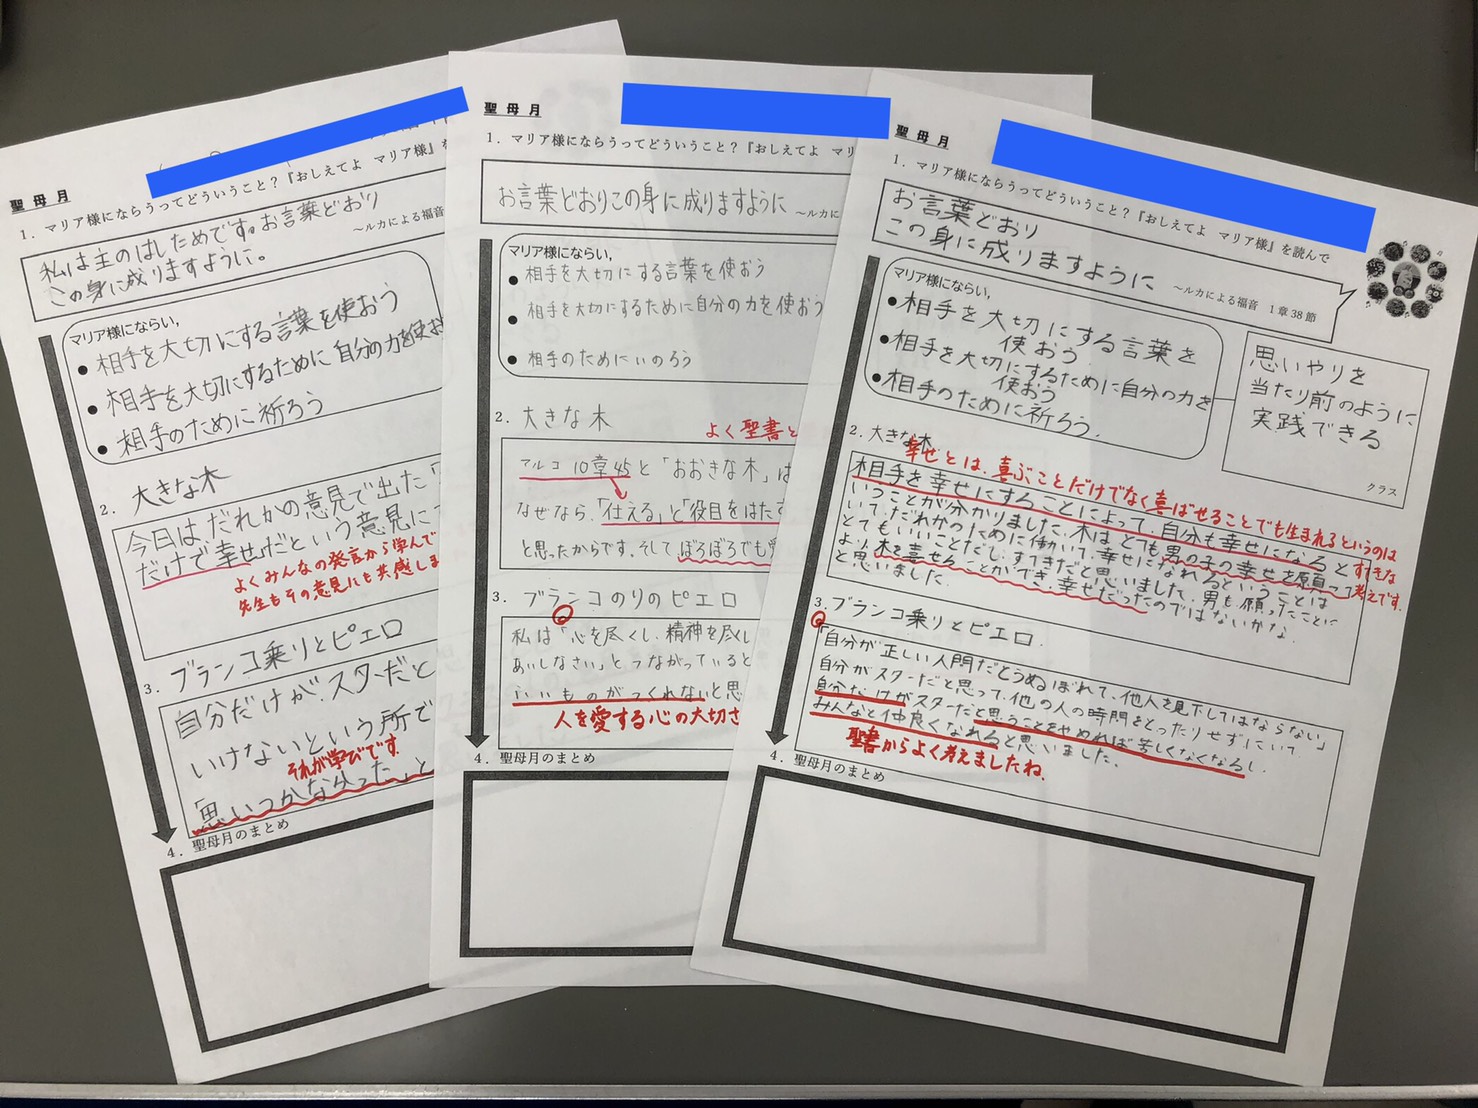 聖母月
1．マリア様にならうってどういうこと？『おしえてよ　マリア様』を
私は主のはしためです。お言葉どおり
この身に成りますように。
～ルカによる福音
マリア様にならい，
●相手を大切にする言葉を使おう
●相手を大切にするために自分の力を使お
●相手のために祈ろう
2．大きな木
今日は、だれかの意見で出た「
だけで幸せだという意見に
よくみんなの発言から学んで
先生もその意見にも共感しま
3．ブランコ乗りとピエロ
自分だけが、スターだと
いけないという所で
それが学びです
「思いつかなかった」と
4．聖母月のまとめ
聖母月
1．マリア様にならうってどういうこと？『おしえてよ　マリ
お言葉どおりこの身に成りますように
～ルカに
マリア様にならい，
●相手を大切にする言葉を使おう
●相手を大切にするために自分の力を使おう
●相手のためにいのろう
2．大きな木
よく聖書と
マルコ10章45と「おおきな木」は
なぜなら、「仕える」と「役目をはたす
と思ったからです。そして、ぼろぼろでも
3．ブランコのりのピエロ
私は「心を尽くし、精神を尽くし
あいしなさい」とつながっていると
いいものがつくれないと思
人を愛する心の大切さ
4．聖母月のまとめ
聖母月
1．マリア様にならうってどういうこと？『おしえてよ　マリア様』を読んで
お言葉どおり
この身に成りますように
～ルカによる福音　1章38節
マリア様にならい，
●相手を大切にする言葉を
使おう
●相手を大切にするために自分の力を
使おう
●相手のために祈ろう．
思いやりを
当たり前のように
実践できる
クラス
2．大きな木
幸せとは、喜ぶことだけでなく喜ばせることでも生まれるというのは
すてきな
考えです．
相手を幸せにすることによって、自分も幸せになると
いうことが分かりました。木はとても男の子の幸せを願って
いて、だれかのために働いて、幸せになれるということは
とてもいいことだし、すてきだと思いました。男も願ったことに
より木を喜せることができ、幸せだったのではないかな．
と思いました．
3．ブランコ乗りとピエロ．
「自分が正しい人間だとうぬぼれて、他人を見下してはならない」
自分がスターだと思って、他の人の時間をとったりせずにいて
自分だけがスターだと思うことをやめれば苦しくなくなるし、
みんなと仲良くなれると思いました．
聖書からよく考えましたね．
4．聖母月のまとめ